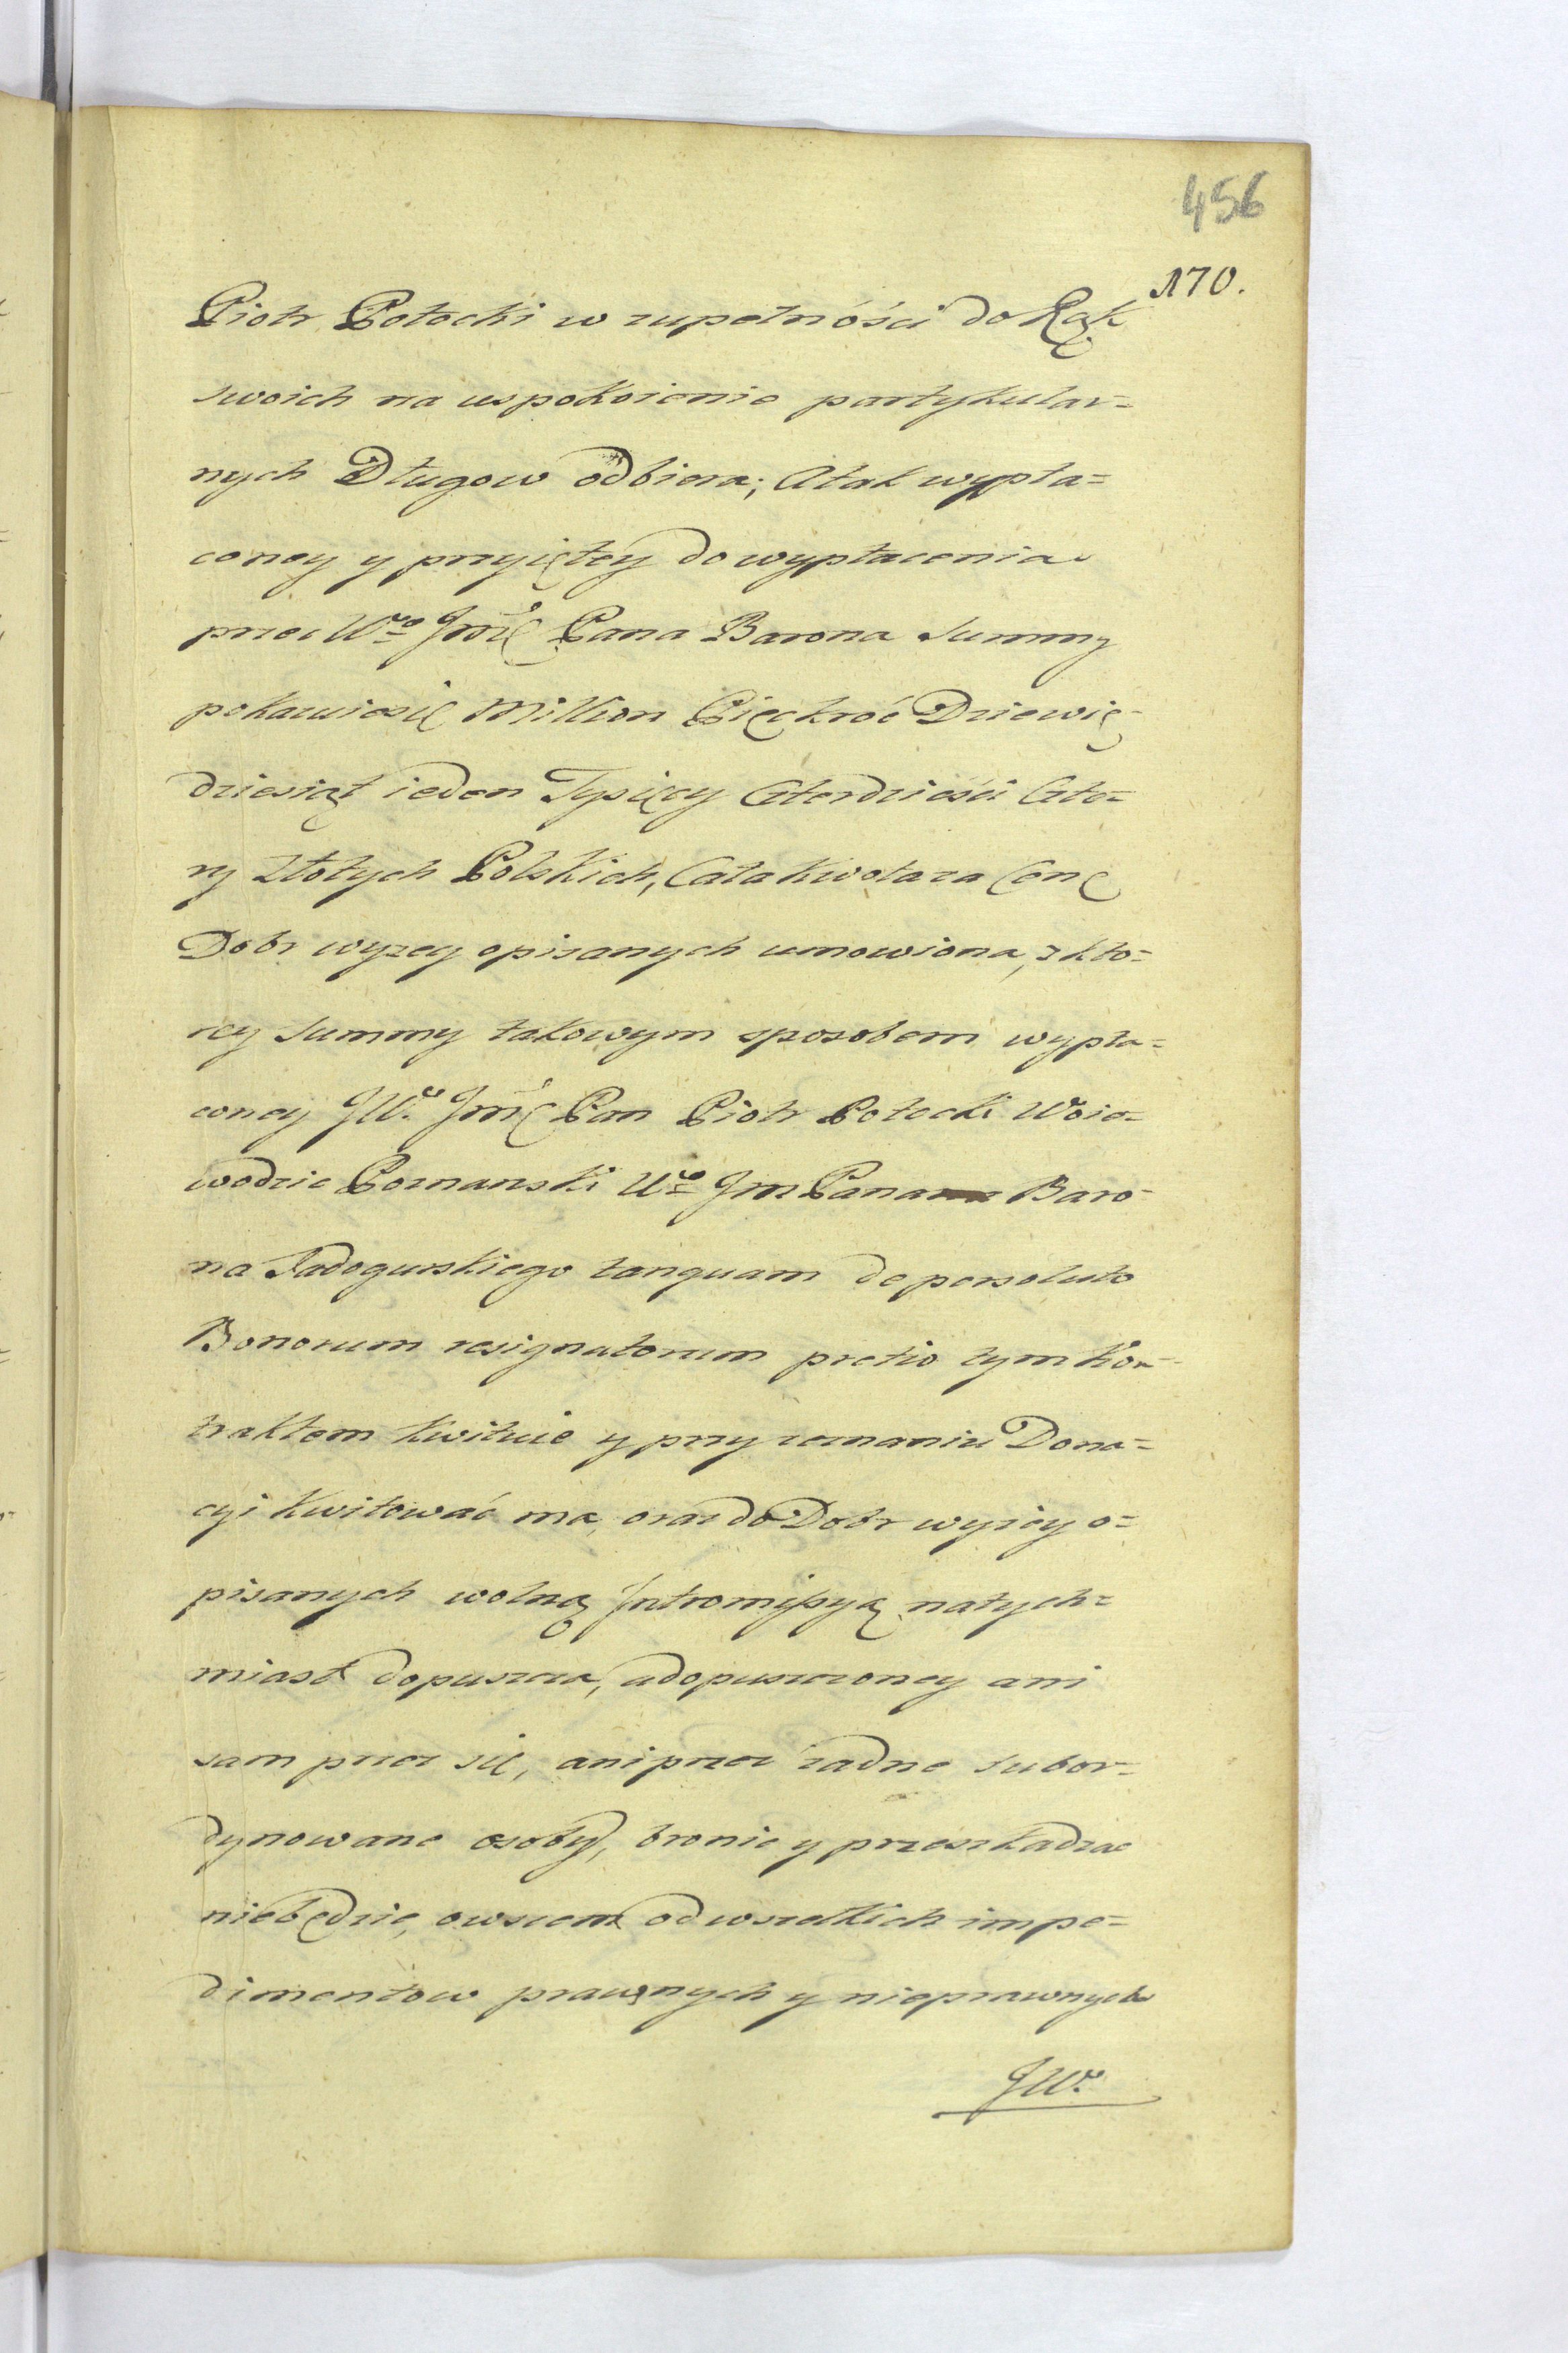 456
170.
Piotr Potocki w zupełnóści do Rąk
swoich na uspokoienie partykular=
nych Długow odbiera; Atak wypła=
coney y przyiętey do wypłacenia
przez Wo Jmć Pana Barona Summy
pokazuiesię Million Pięckroć Dziewię=
dziesiąt ieden Tysięcy Czterdzieści Czte=
ry Złotych Polskich, Cała Kwota za Cenę
Dobr wyzey opisanych umowiona, z kto=
rey Summy takowym sposobem wypła=
coney JW. Jmć Pan Piotr Potocki Woie=
wodzic Poznanski Wo Jm Pana Baro=
na Sadogurskiego tanquam de persoluto
Bonorum resignatorum pretio tym Kon=
traktem kwituie y przy zeznaniu Dona=
cyi kwitować ma, oraz do Dobr wyzey o=
pisanych wolną Intromissyą natych=
miast dopuszcza, a dopuszczoney ani
sam przez się, ani przez zadne subor=
dynowane osoby, bronic y przeszkadzac
niebędzie, owszem od wszelkich impe=
dimentow prawnych y nieprawnych
JW.